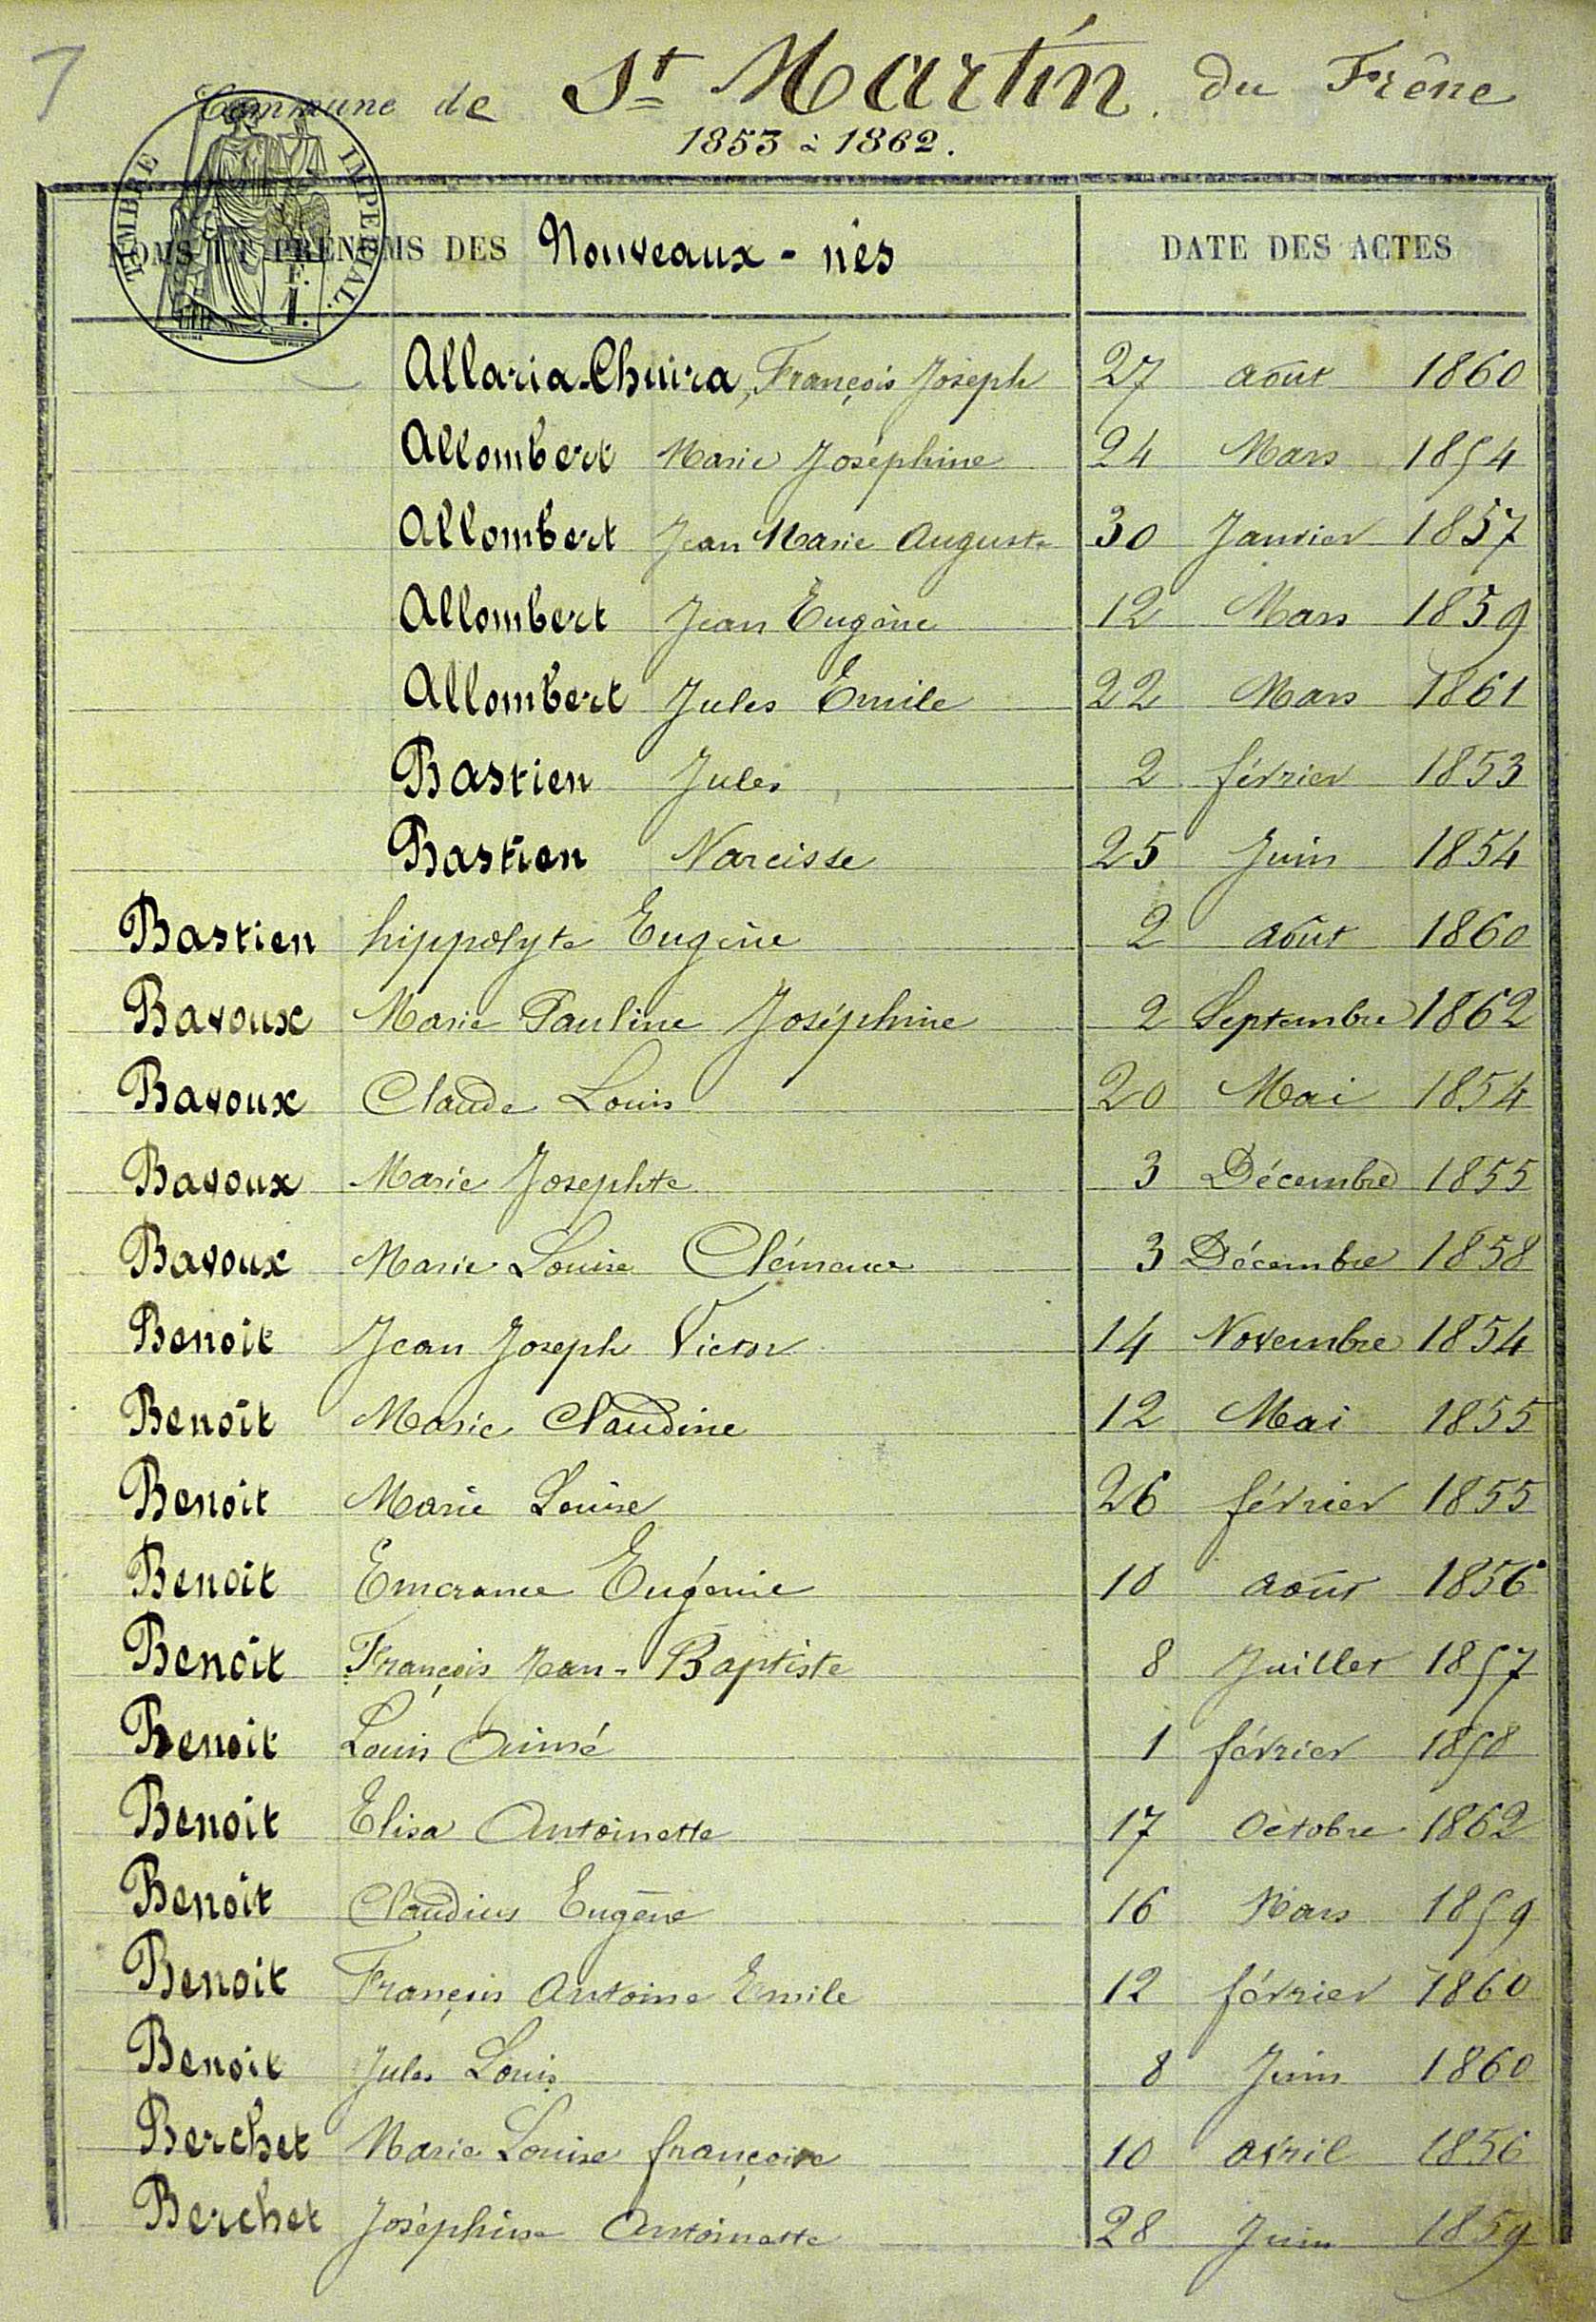 7
Commune de St Martin du Frêne
1853 à 1862.
TIMBRE IMPERIAL.
F.
1.
NOMS ET PRENOMS DES Nouveaux-nés DATE DES ACTES
Allaria-Chuira, François Joseph 27 août 1860
Allombert Marie Joséphine 24 Mars 1854
Allombert Jean Marie Auguste 30 Janvier 1857
Allombert Jean Eugène 12 Mars 1859
Allombert Jules Emile 22 Mars 1861
Bastien Jules 2 février 1853
Bastien Narcisse 25 Juin 1854
Bastien hippolyte Eugène 2 août 1860
Bavoux Marie Pauline Joséphine 2 Septembre 1862
Bavoux Claude Louis 20 Mai 1854
Bavoux Marie Josephte 3 Décembre 1855
Bavoux Marie Louise Clémence 3 Décembre 1858
Benoit Jean Joseph Victor 14 Novembre 1854
Benoît Marie Claudine 12 Mai 1855
Benoit Marie Louise 26 février 1855
Benoît Emerance Eugénie 10 août 1856
Benoît François Jean-Baptiste 8 Juillet 1857
Benoit Louis Aimé 1 février 1858
Benoit Elisa Antoinette 17 Octobre 1862
Benoît Claudius Eugène 16 Mars 1859
Benoit François Antoine Emile 12 février 1860
Benoit Jules Louis 8 Juin 1860
Berchet Marie Louise françoise 10 avril 1856
Berchet Joséphine Antoinette 28 Juin 1859